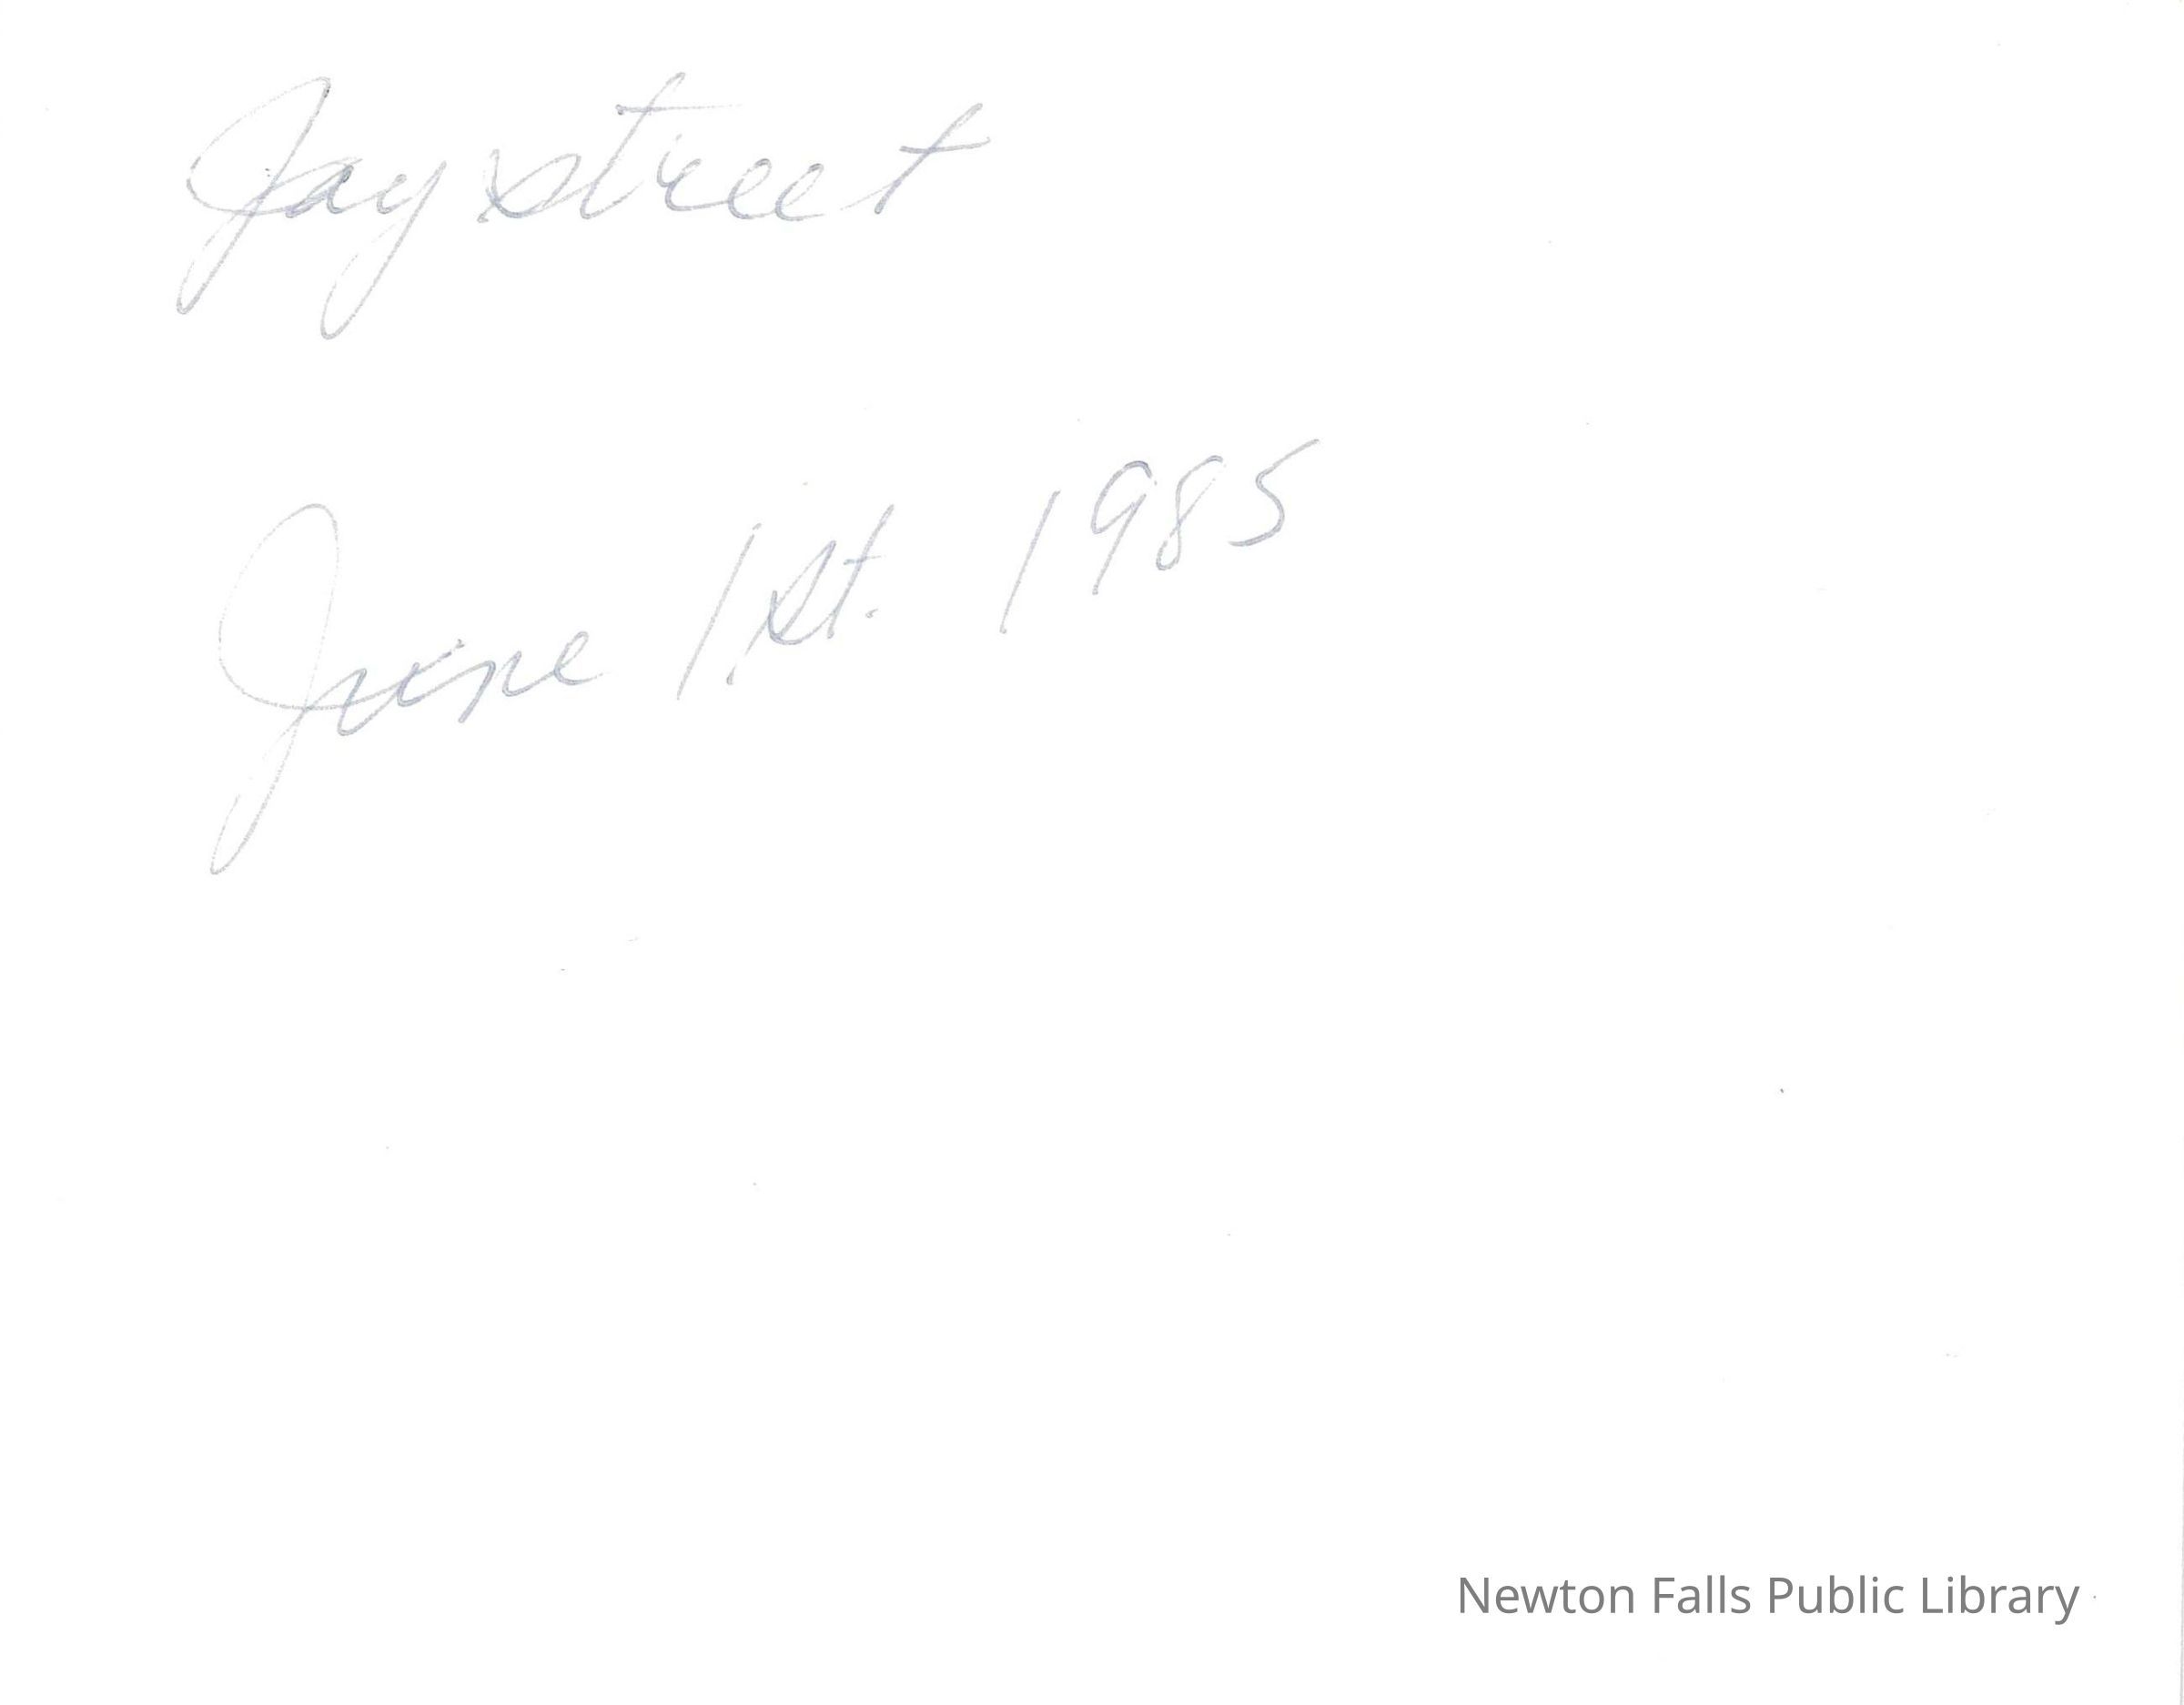 Jay street
June 1.st. 1985
Newton Falls Public Library